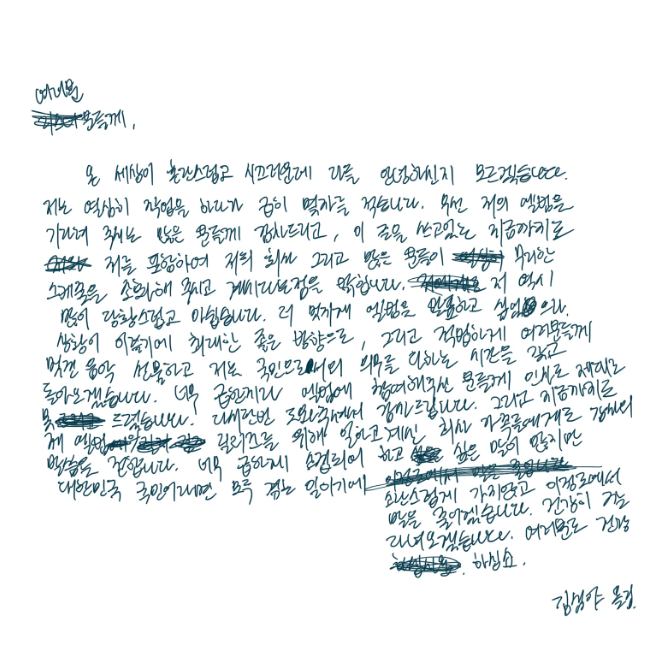 여러분
분들께,
온 세상이 혼란스럽고 시끄러운데 다들 안녕하신지 모르겠습니다.
저는 열심히 작업을 하다가 급히 몇자를 적습니다. 우선 저의 앨범을
기다려 주시는 많은 분들께 감사드리고, 이 글을 쓰고있는 지금까지도
저를 포함하여 저희 회사 그리고 많은 분들이 무리한
스케줄을 소화해 주시고 계시다는점을 밝힙니다. 저 역시
많이 당황스럽고 아쉽습니다. 더 멋지게 앨범을 발매하고 싶었으나
상황이 이렇기에 최대한 좋은 방향으로, 그리고 정당하게 여러분들께
먼저 음악 선물하고 저는 국민으로서의 의무를 다하는 시간을 갖고
돌아오겠습니다. 너무 급한지라 앨범에 참여해주신 분들께 인사도 제대로
못 드렸습니다. 다시한번 도와주셔서 감사드립니다. 그리고 지금까지도
제 앨범 릴리즈를 위해 일하고계실 회사 가족들에게도 감사의
말씀을 전합니다. 너무 급하게 소집되어 하고 싶은 말이 많지만
대한민국 국민이라면 모두 겪는 일이기에
소란스럽게 가지않고 이정도에서
말을 줄이겠습니다. 건강히 잘
다녀오겠습니다. 여러분도 건강
하십쇼.
김성야 올림.